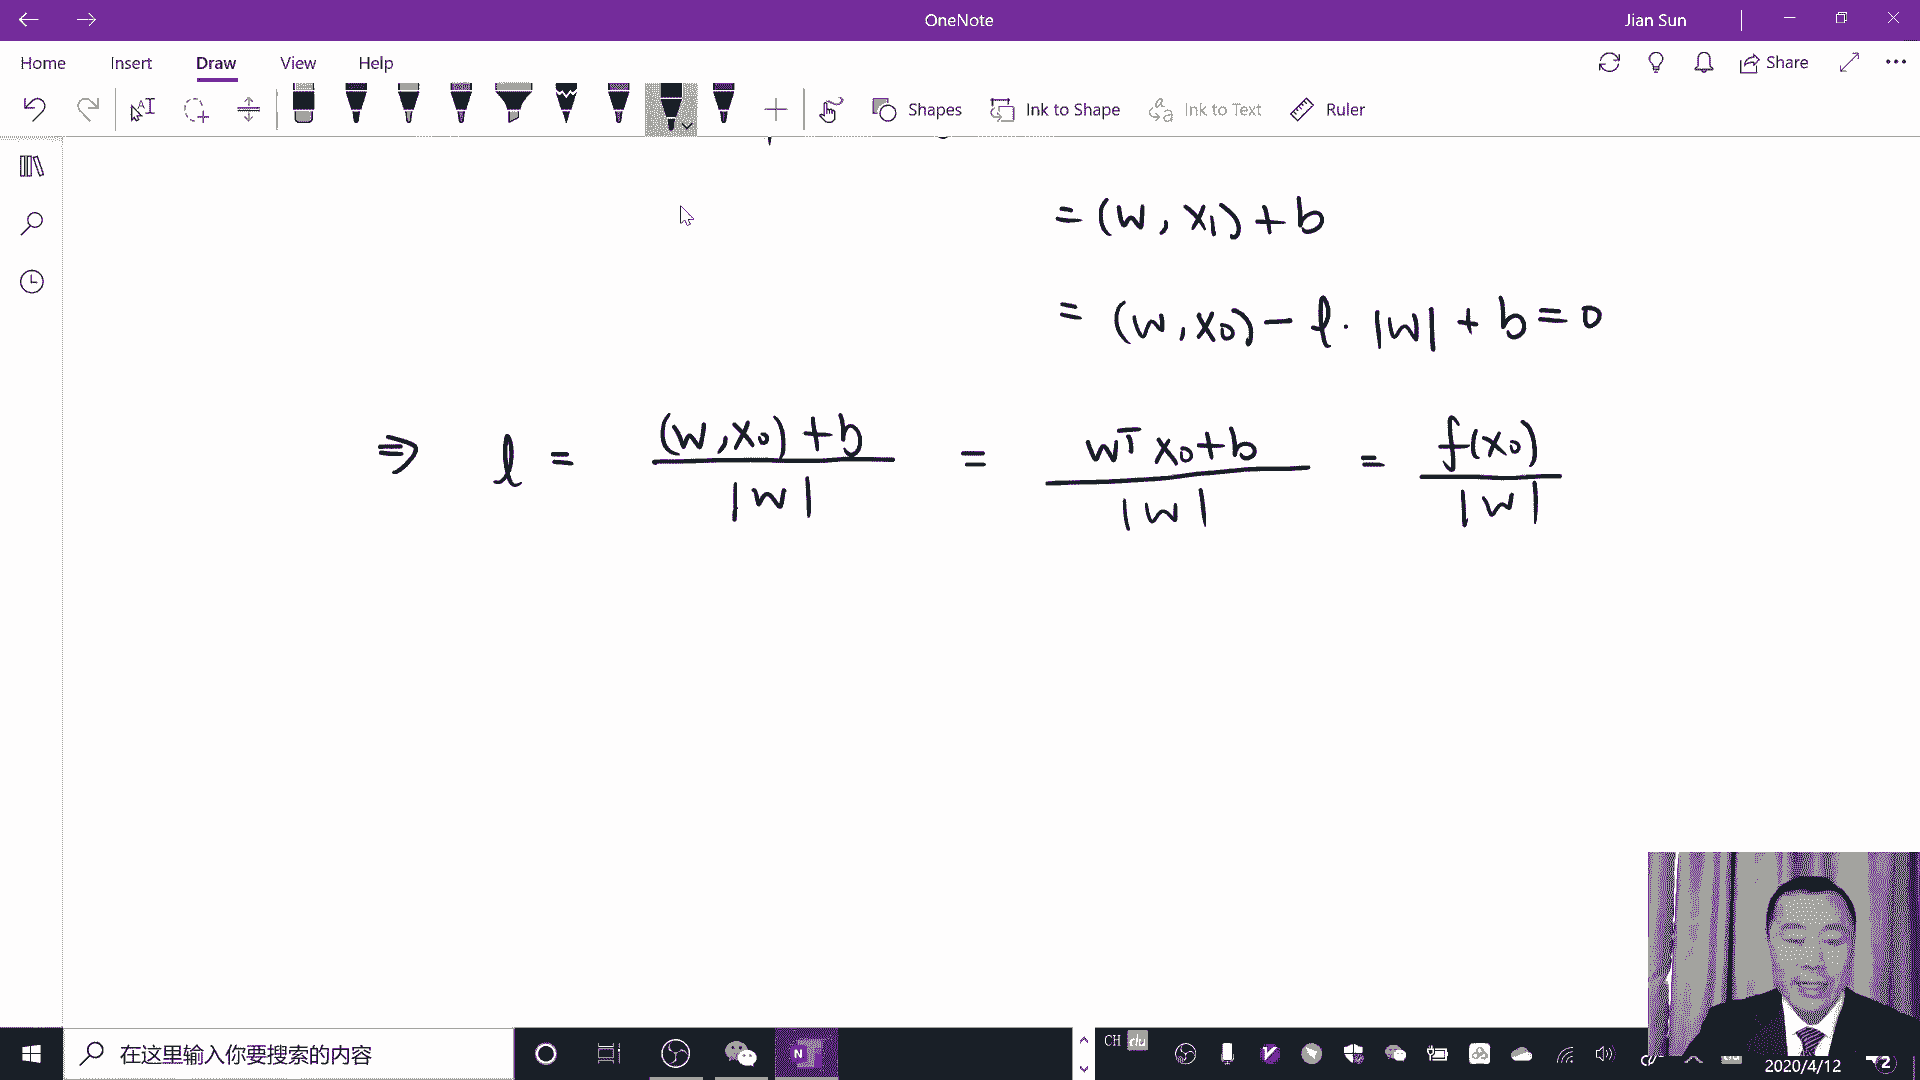 OneNote
Jian Sun
Home Insert Draw View Help
Share
Shapes Ink to Shape Ink to Text Ruler
= (w, x₁) + b
= (w, x₀) − l · |w| + b = 0
⇒ l = ((w, x₀) + b) / |w| = (wᵀ x₀ + b) / |w| = f(x₀) / |w|
在这里输入你要搜索的内容
N
CH du
2020/4/12
2